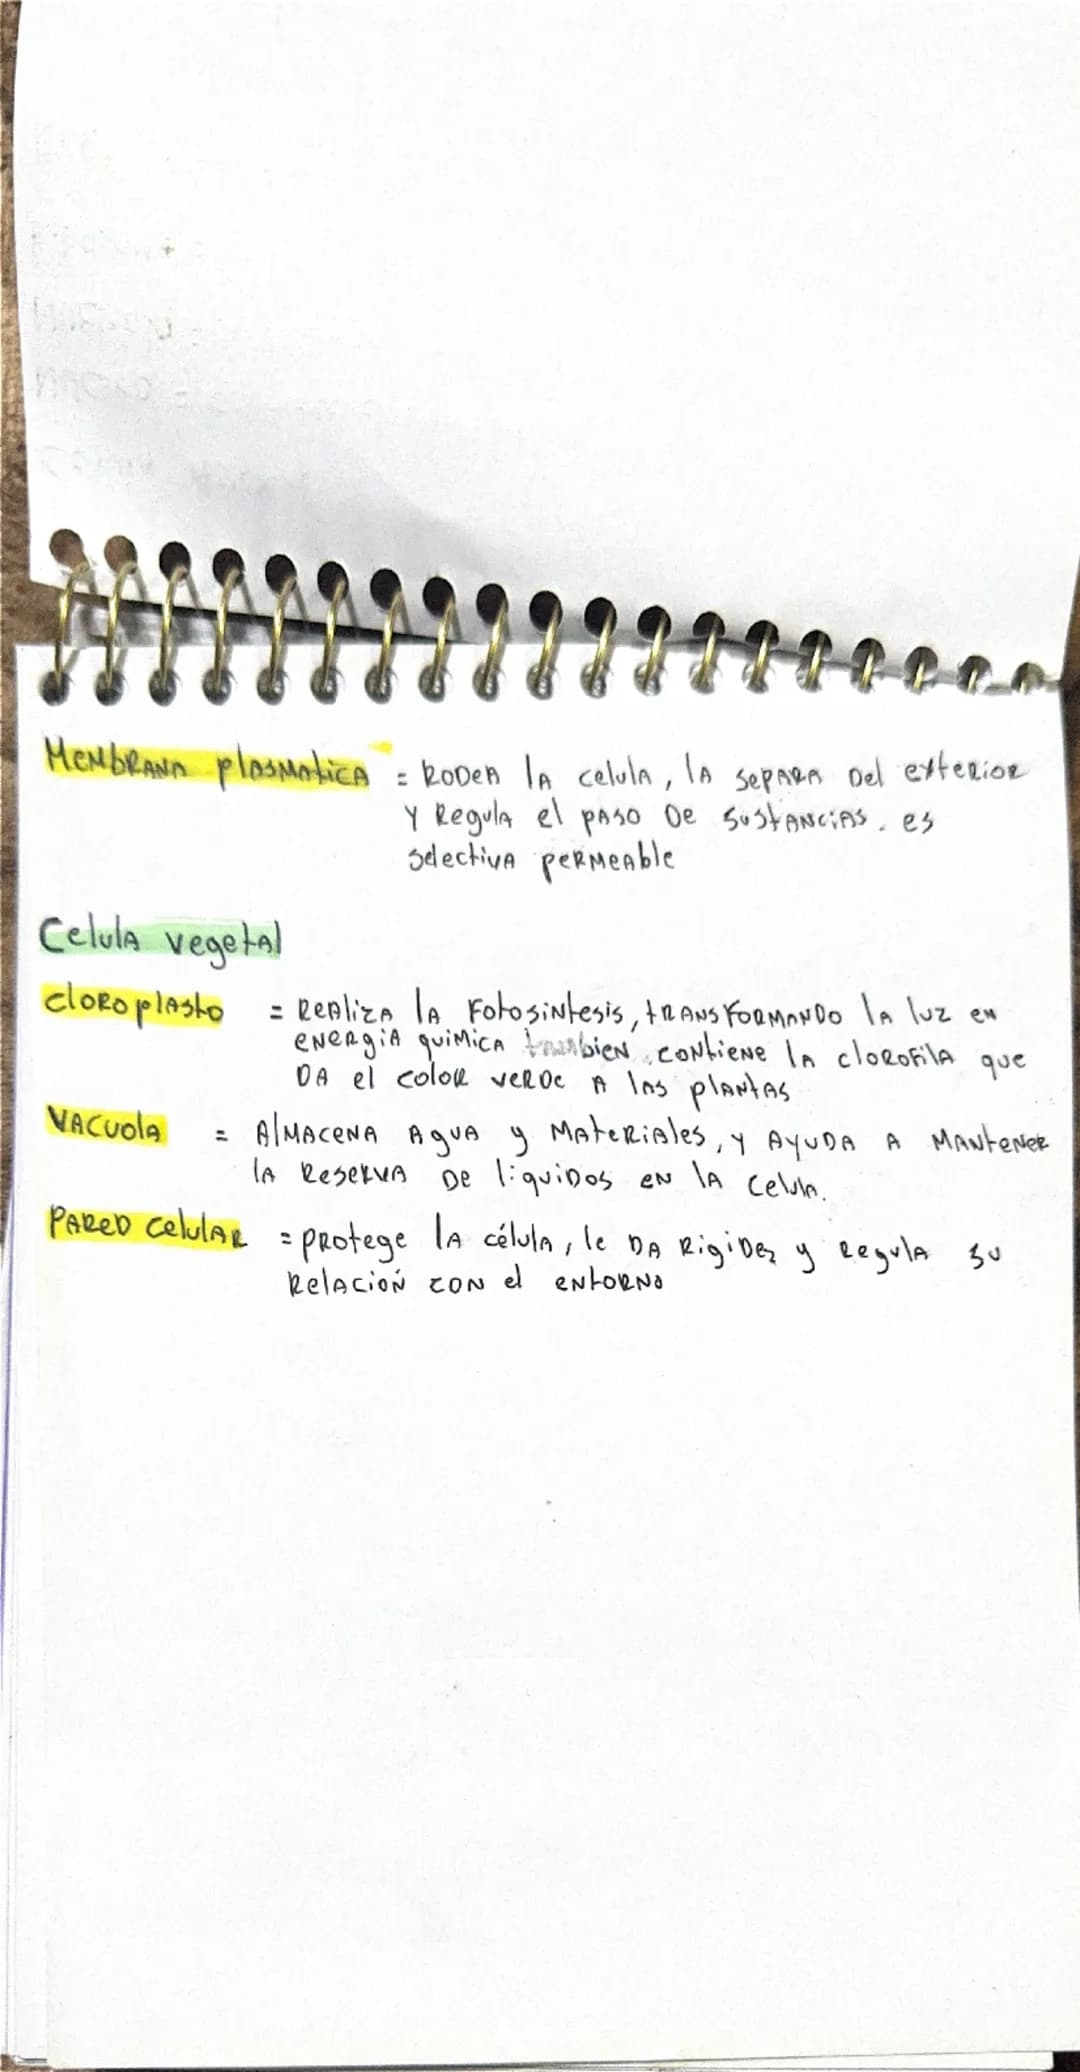 Membrana plasmatica = Rodea la celula, la separa del exterior
y Regula el paso de sustancias. es
selectiva permeable
Celula vegetal
cloroplasto = Realiza la Fotosintesis, transformando la luz en
energia quimica tambien contiene la clorofila que
da el color verde a las plantas
Vacuola = Almacena Agua y Materiales, y Ayuda a Mantener
la Reserva de liquidos en la celula.
Pared celular = protege la célula, le da Rigidez y regula su
Relación con el entorno